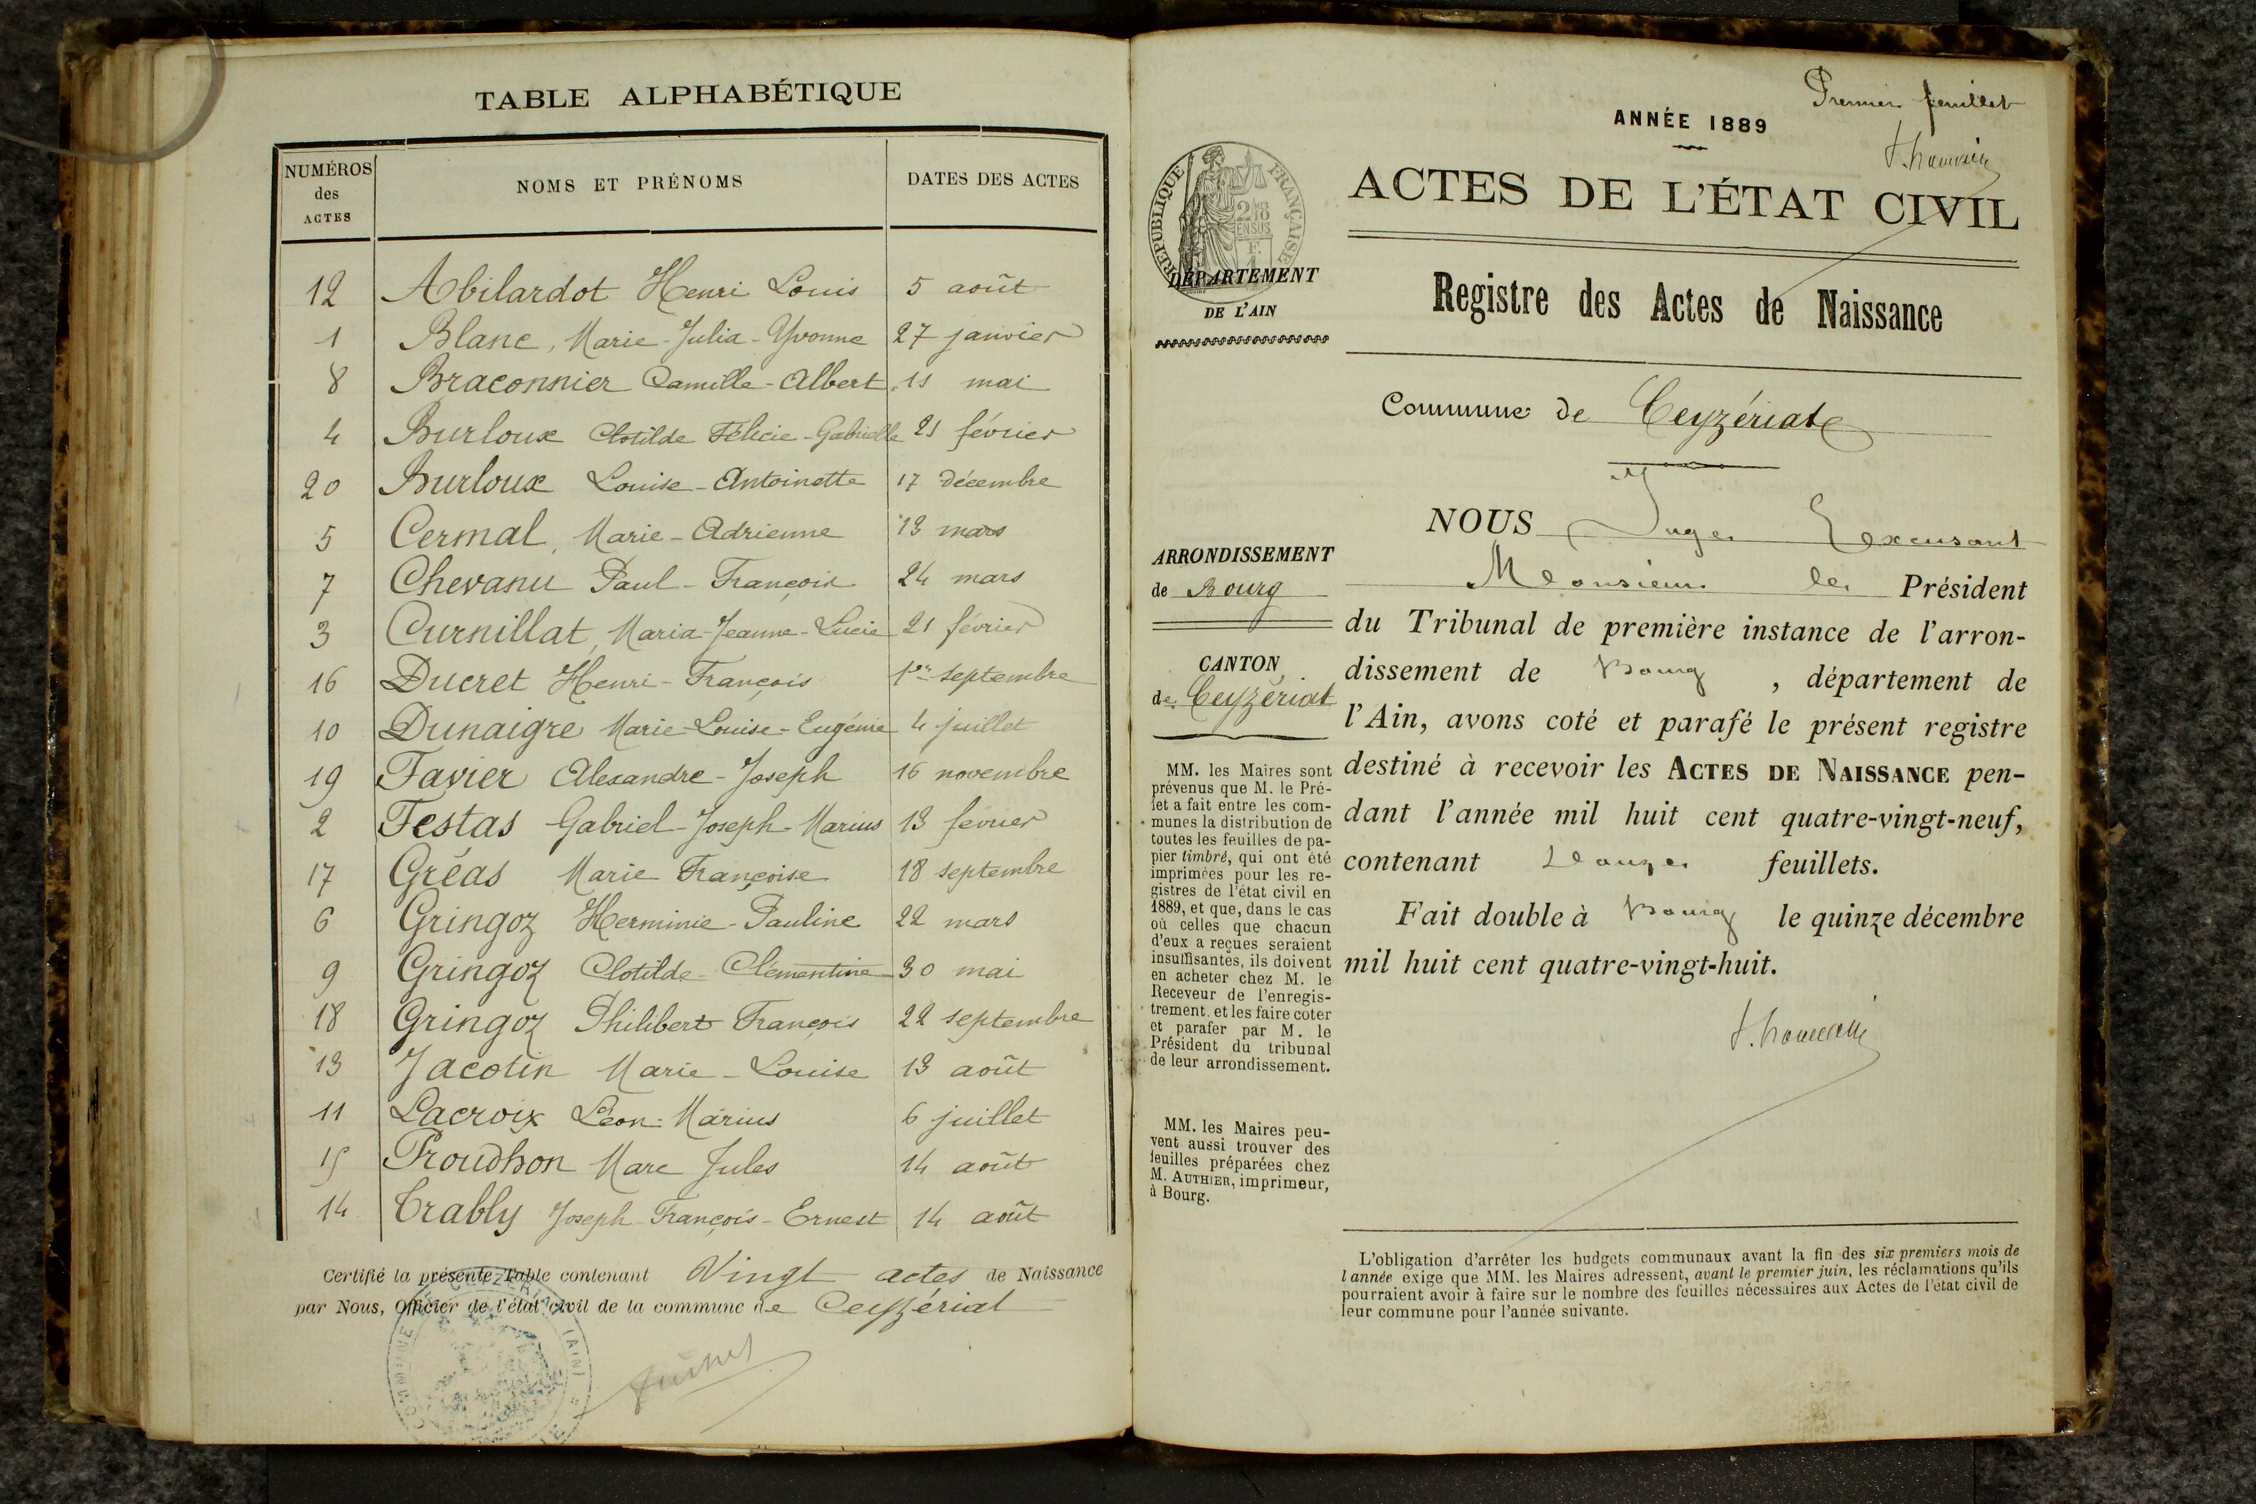 TABLE ALPHABÉTIQUE
NUMÉROS
des
ACTES
NOMS ET PRÉNOMS
DATES DES ACTES
12 Abilardot Henri Louis 5 août
1 Blanc, Marie-Julia-Yvonne 27 janvier
8 Braconnier Camille-Albert 11 mai
4 Burloux Clotilde Félicie-Gabrielle 21 février
20 Burloux Louise-Antoinette 17 décembre
5 Cermal, Marie-Adrienne 13 mars
7 Chevanu Paul-François 24 mars
3 Curnillat, Maria-Jeanne-Lucie 21 février
16 Ducret Henri-François 1er septembre
10 Dunaigre Marie-Louise-Eugénie 4 juillet
19 Favier Alexandre-Joseph 16 novembre
2 Festas Gabriel-Joseph-Marius 13 février
17 Gréas Marie Françoise 18 septembre
6 Gringoz Herminie-Pauline 22 mars
9 Gringoz Clotilde-Clémentine 30 mai
18 Gringoz Philibert François 22 septembre
13 Jacotin Marie-Louise 13 août
11 Lacroix Léon-Marius 6 juillet
15 Proudhon Marc Jules 14 août
14 Trably Joseph-François-Ernest 14 août
Certifié la présente Table contenant Vingt actes de Naissance
par Nous, Officier de l'état civil de la commune de Ceyzériat
Premier feuillet
ANNÉE 1889
ACTES DE L'ÉTAT CIVIL
RÉPUBLIQUE FRANÇAISE
DÉPARTEMENT
DE L'AIN
Registre des Actes de Naissance
Commune de Ceyzériat
ARRONDISSEMENT
de Bourg
CANTON
de Ceyzériat
MM. les Maires sont
prévenus que M. le Pré-
fet a fait entre les com-
munes la distribution de
toutes les feuilles de pa-
pier timbré, qui ont été
imprimées pour les re-
gistres de l'état civil en
1889, et que, dans le cas
où celles que chacun
d'eux a reçues seraient
insuffisantes, ils doivent
en acheter chez M. le
Receveur de l'enregis-
trement et les faire coter
et parafer par M. le
Président du tribunal
de leur arrondissement.
MM. les Maires peu-
vent aussi trouver des
feuilles préparées chez
M. AUTHIER, imprimeur,
à Bourg.
NOUS Juge
Monsieur le Président
du Tribunal de première instance de l'arron-
dissement de Bourg, département de
l'Ain, avons coté et parafé le présent registre
destiné à recevoir les ACTES DE NAISSANCE pen-
dant l'année mil huit cent quatre-vingt-neuf,
contenant feuillets.
Fait double à Bourg le quinze décembre
mil huit cent quatre-vingt-huit.
L'obligation d'arrêter les budgets communaux avant la fin des six premiers mois de
l'année exige que MM. les Maires adressent, avant le premier juin, les réclamations qu'ils
pourraient avoir à faire sur le nombre des feuilles nécessaires aux Actes de l'état civil de
leur commune pour l'année suivante.